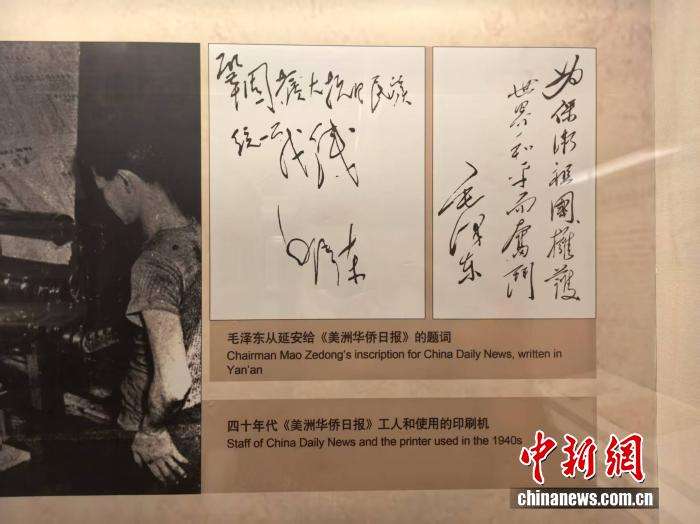 鞏固擴大抗日民族
統一戰綫
毛澤東
为保衛祖國擁護
世界和平而奮鬥
毛澤东
毛泽东从延安给《美洲华侨日报》的题词
Chairman Mao Zedong's inscription for China Daily News, written in
Yan'an
四十年代《美洲华侨日报》工人和使用的印刷机
Staff of China Daily News and the printer used in the 1940s
中新网
www.chinanews.com.cn